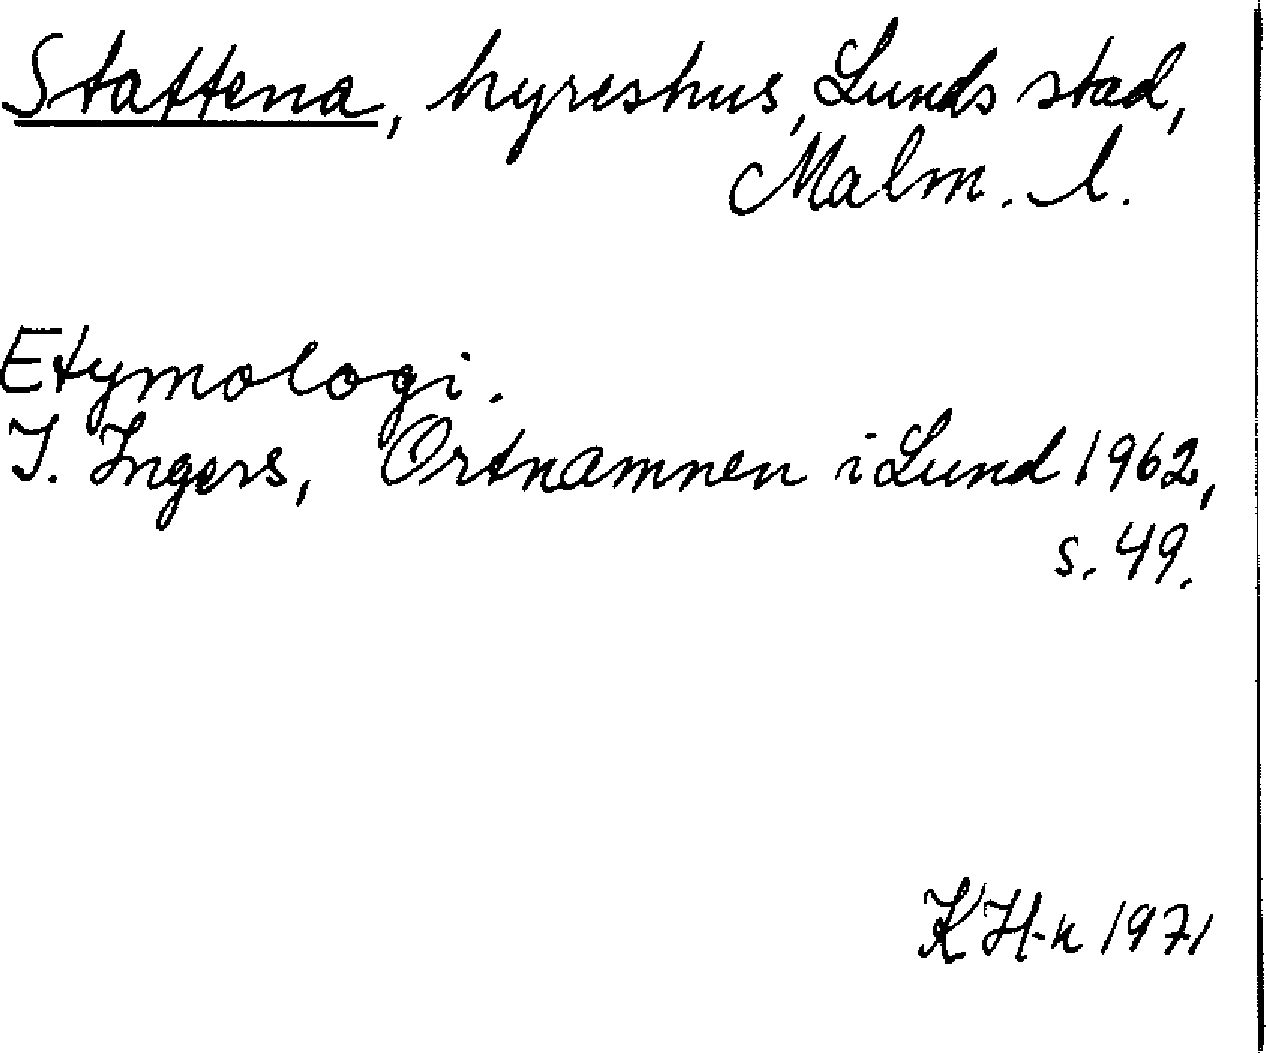 Stattena, hyreshus, Lunds stad,
Malm. l.
Etymologi.
I. Ingers, Ortnamnen i Lund 1962,
s. 49.
KH-n 1971